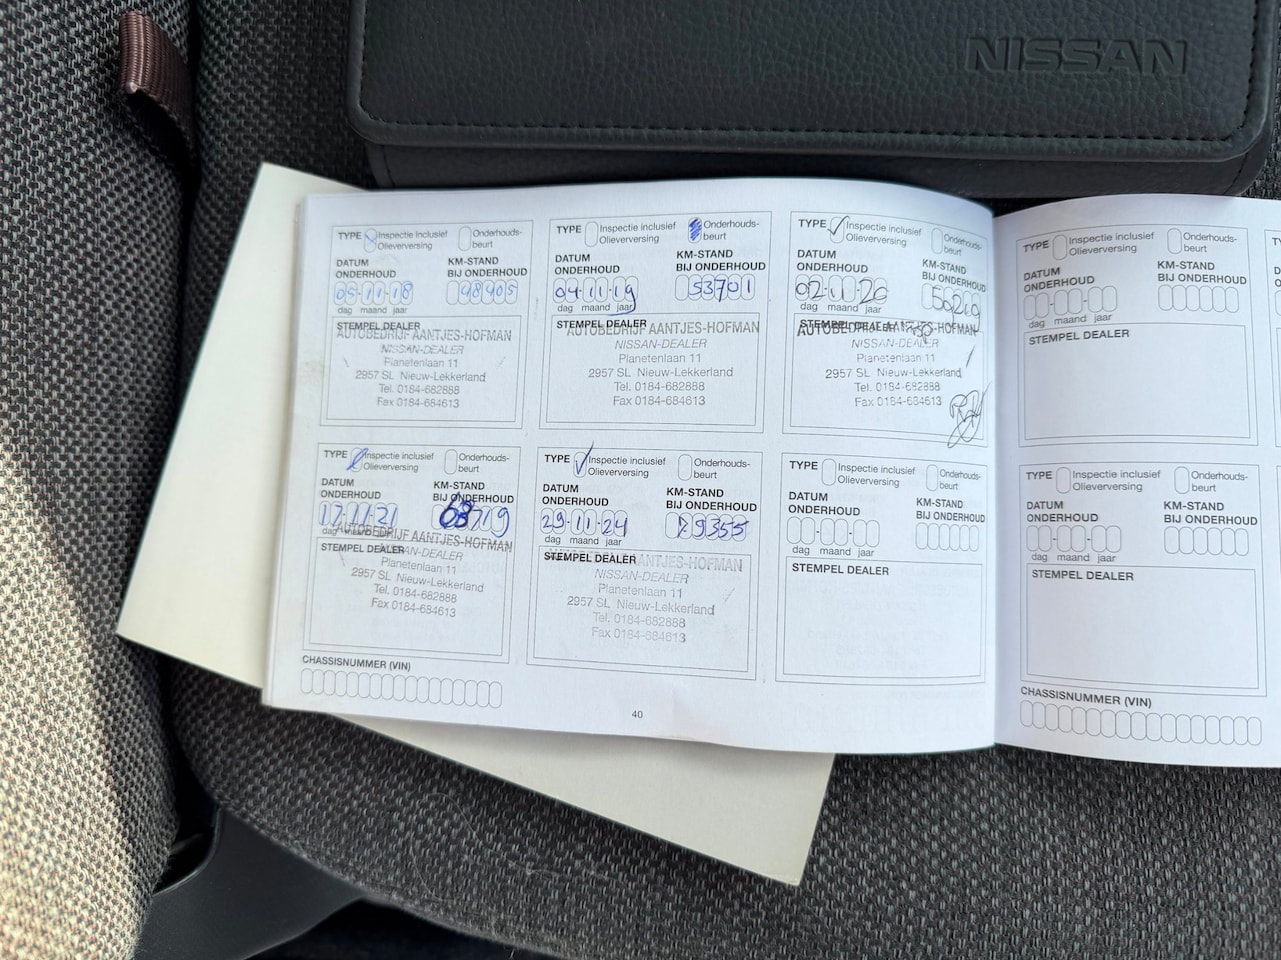 NISSAN
TYPE Inspectie inclusief Olieverversing Onderhouds-beurt
DATUM ONDERHOUD KM-STAND BIJ ONDERHOUD
05-11-18 48905
dag maand jaar
STEMPEL DEALER
AUTOBEDRIJF AANTJES-HOFMAN
NISSAN-DEALER
Planetenlaan 11
2957 SL Nieuw-Lekkerland
Tel. 0184-682888
Fax 0184-684613
TYPE Inspectie inclusief Olieverversing Onderhouds-beurt
DATUM ONDERHOUD KM-STAND BIJ ONDERHOUD
04-11-19 53701
dag maand jaar
STEMPEL DEALER
AUTOBEDRIJF AANTJES-HOFMAN
NISSAN-DEALER
Planetenlaan 11
2957 SL Nieuw-Lekkerland
Tel. 0184-682888
Fax 0184-684613
TYPE Inspectie inclusief Olieverversing Onderhouds-beurt
DATUM ONDERHOUD KM-STAND BIJ ONDERHOUD
02-11-20
dag maand jaar
STEMPEL DEALER
AUTOBEDRIJF AANTJES-HOFMAN
NISSAN-DEALER
Planetenlaan 11
2957 SL Nieuw-Lekkerland
Tel. 0184-682888
Fax 0184-684613
TYPE Inspectie inclusief Olieverversing Onderhouds-beurt
DATUM ONDERHOUD KM-STAND BIJ ONDERHOUD
17-11-21 68719
dag maand jaar
STEMPEL DEALER
AUTOBEDRIJF AANTJES-HOFMAN
NISSAN-DEALER
Planetenlaan 11
2957 SL Nieuw-Lekkerland
Tel. 0184-682888
Fax 0184-684613
TYPE Inspectie inclusief Olieverversing Onderhouds-beurt
DATUM ONDERHOUD KM-STAND BIJ ONDERHOUD
29-11-24 79355
dag maand jaar
STEMPEL DEALER
AANTJES-HOFMAN
NISSAN-DEALER
Planetenlaan 11
2957 SL Nieuw-Lekkerland
Tel. 0184-682888
Fax 0184-684613
TYPE Inspectie inclusief Olieverversing Onderhouds-beurt
DATUM ONDERHOUD KM-STAND BIJ ONDERHOUD
dag maand jaar
STEMPEL DEALER
CHASSISNUMMER (VIN)
40
TYPE Inspectie inclusief Olieverversing Onderhouds-beurt
DATUM ONDERHOUD KM-STAND BIJ ONDERHOUD
dag maand jaar
STEMPEL DEALER
TYPE Inspectie inclusief Olieverversing Onderhouds-beurt
DATUM ONDERHOUD KM-STAND BIJ ONDERHOUD
dag maand jaar
STEMPEL DEALER
CHASSISNUMMER (VIN)